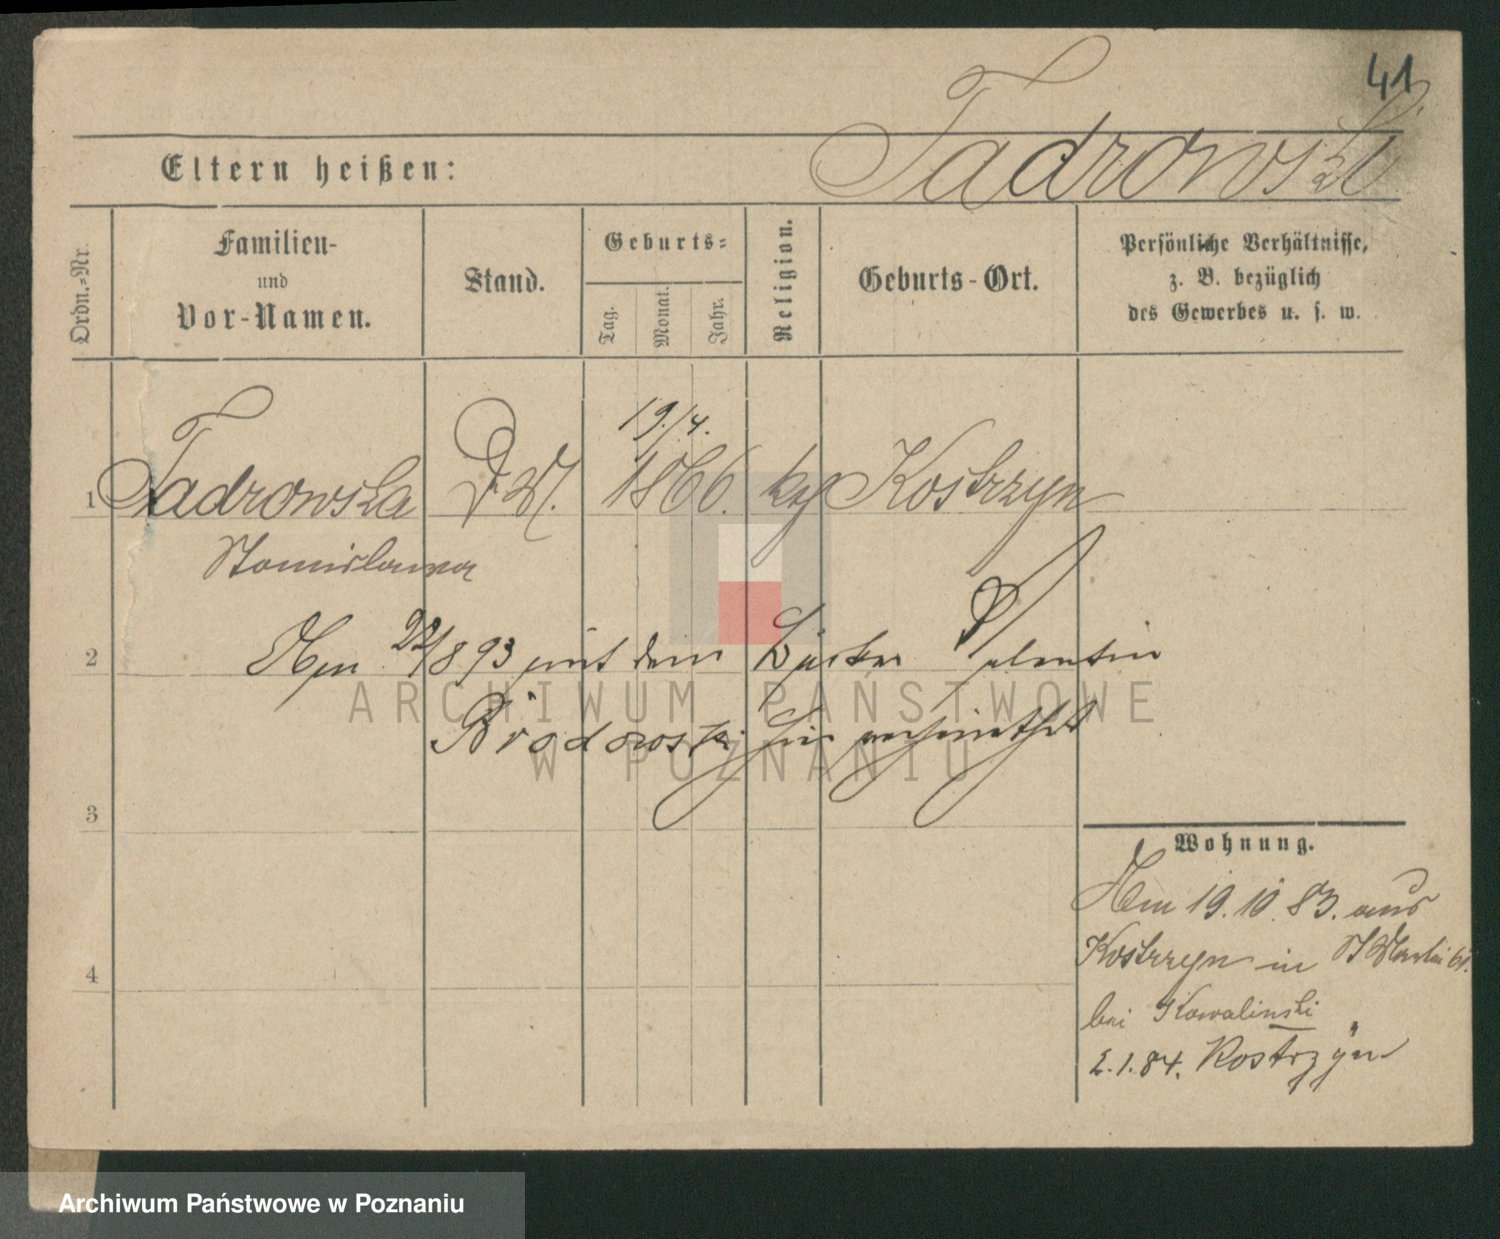 41
Tadrowski
Eltern heißen:
Ordn.-Nr.
Familien-
und
Vor-Namen.
Stand.
Geburts-
Tag.
Monat.
Jahr.
Religion.
Geburts-Ort.
Persönliche Verhältnisse,
z. B. bezüglich
des Gewerbes u. s. w.
19./4.
1 Tadrowska D.M. 1866. kg Kostrzyn
Stanislawa
2 Am 893 mit dem
Brodowski hier verheirathet
3
4
Wohnung.
Am 19.10.83. aus
Kostrzyn in St Martin 61.
bei Kowalinski
2.1.84. Kostrzyn
ARCHIWUM PAŃSTWOWE
W POZNANIU
Archiwum Państwowe w Poznaniu